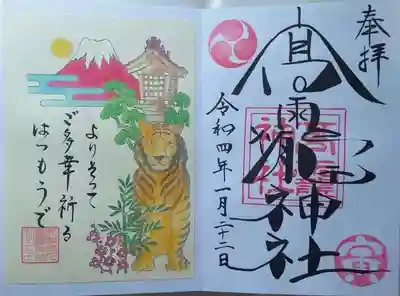 奉拝
髙龗神社
令和四年一月二十二日
よりそって
ご多幸祈る
はつもうで